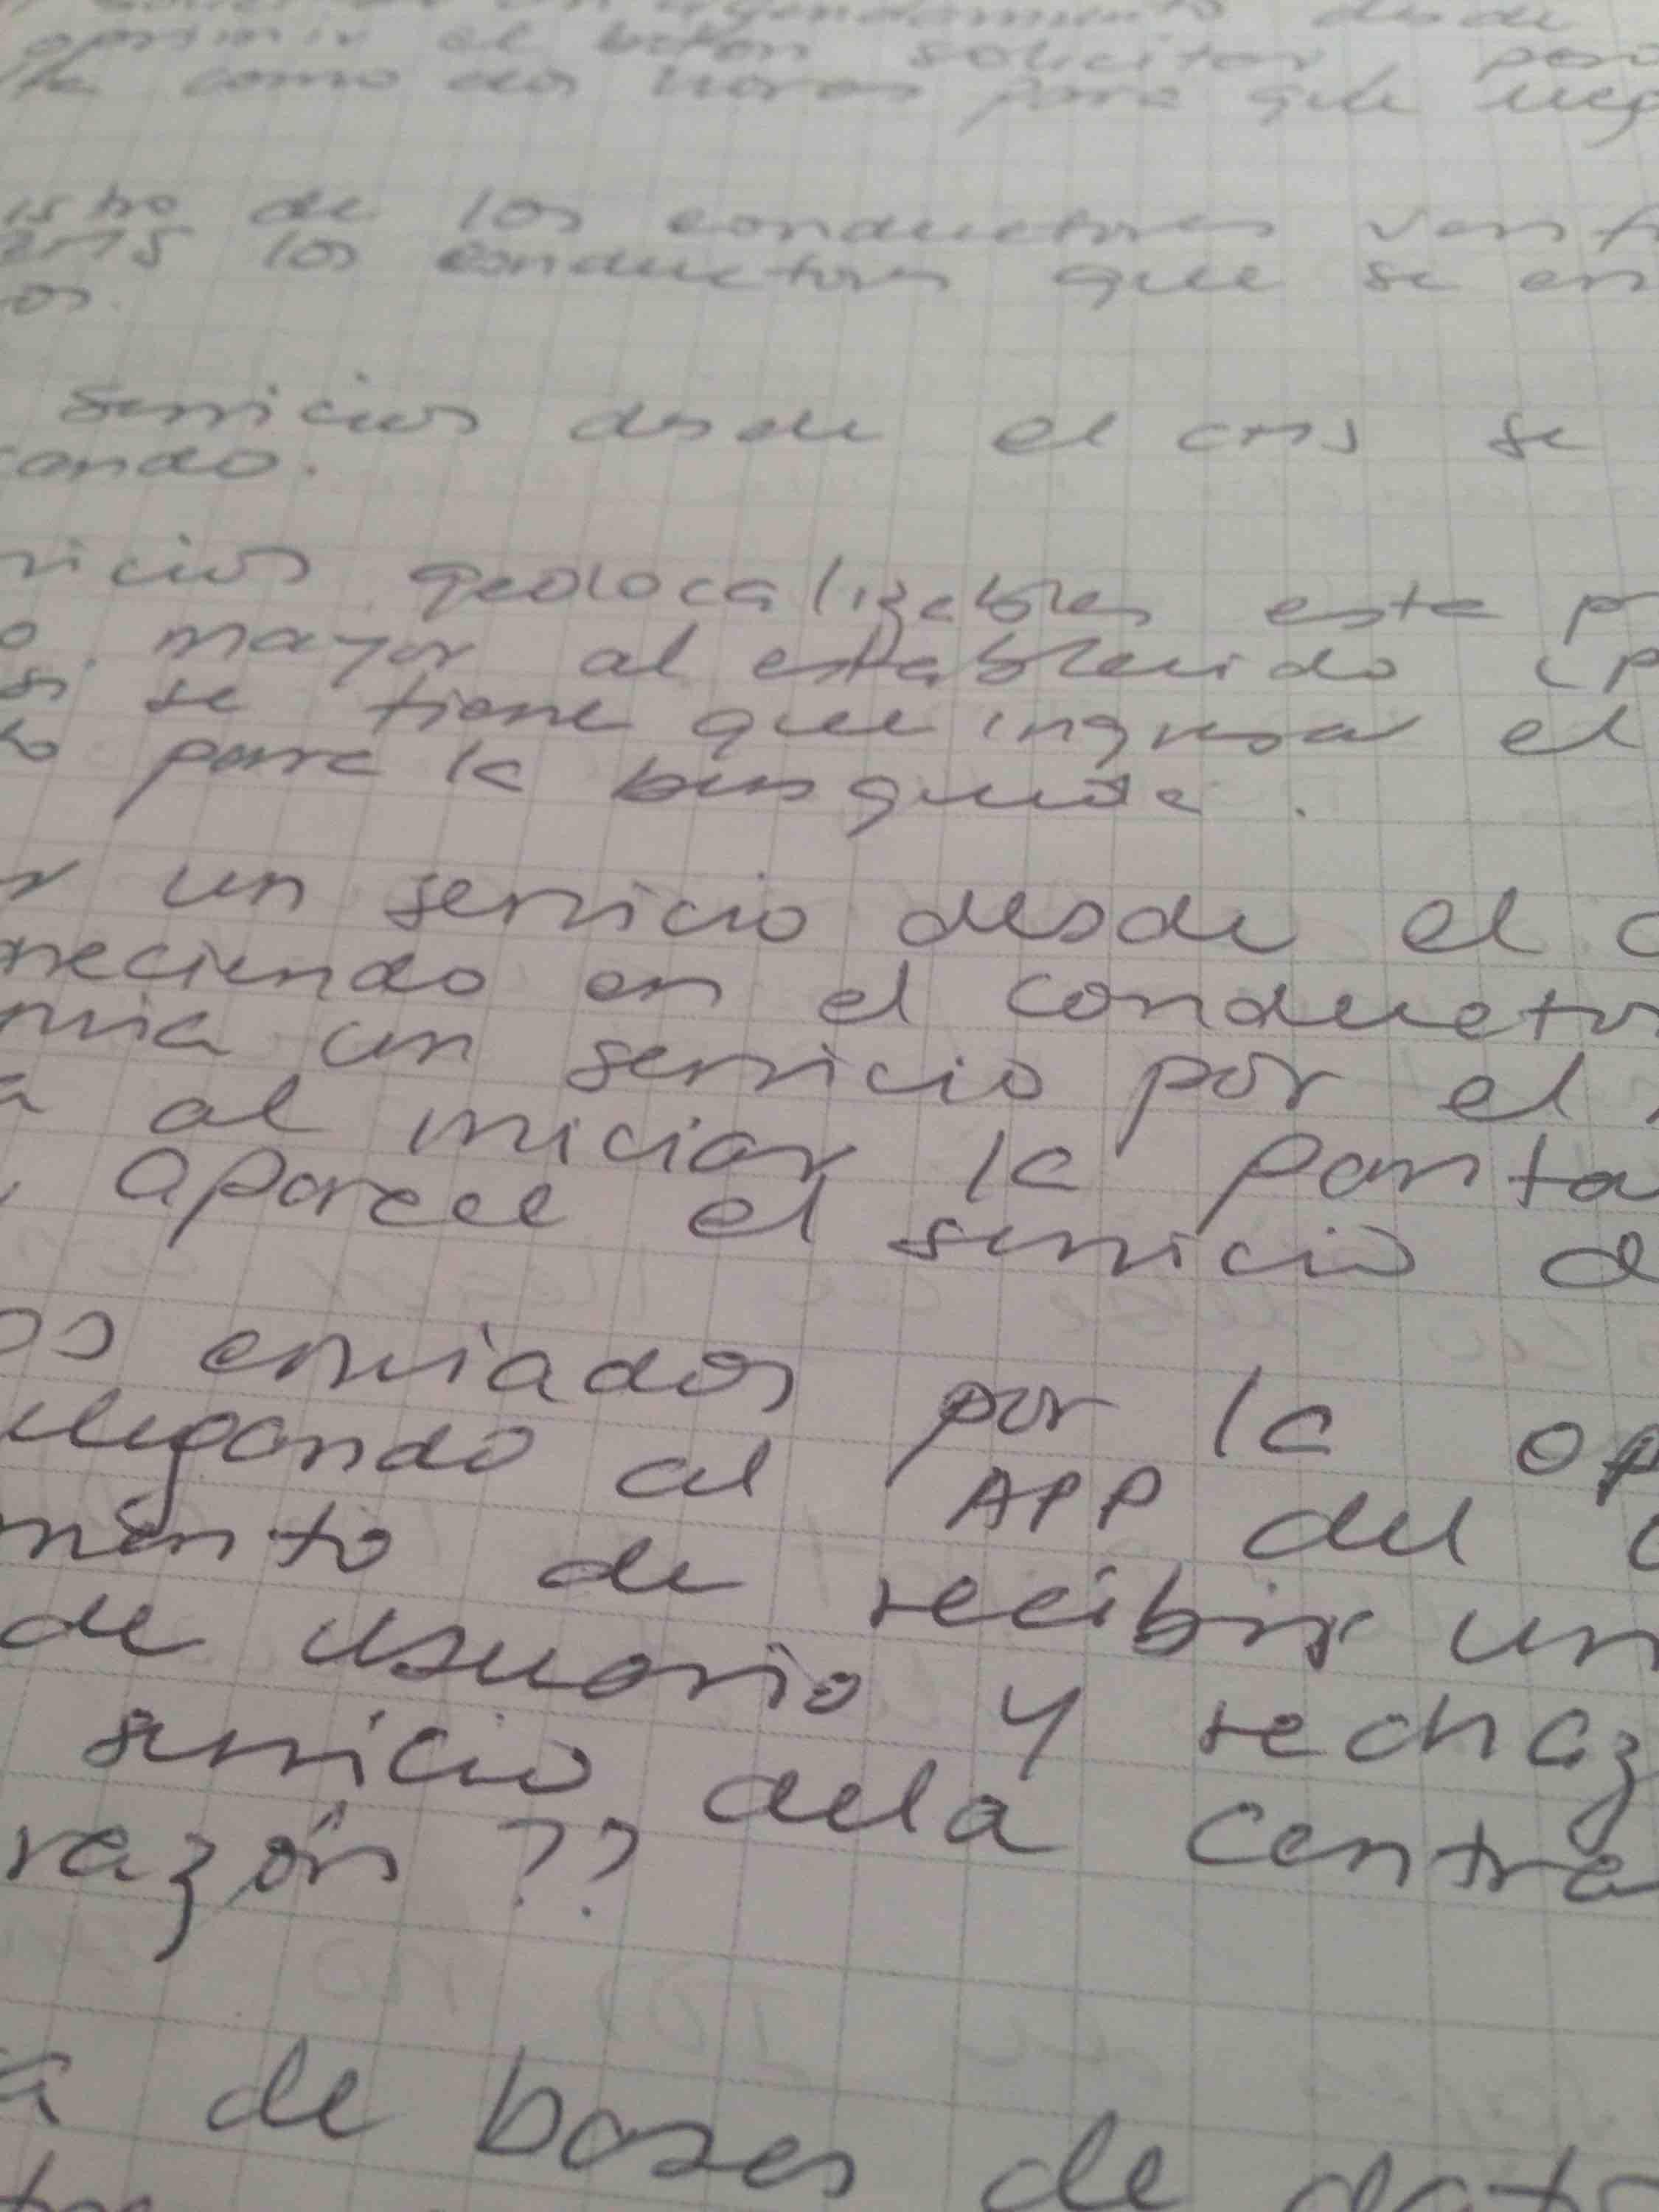 agendamiento desde
oprimir el boton solicitar
como dos horas para que
de los conductores
los conductores que se en
os.
servicios desde el CMS se
cando.
vicios geolocalizables este p
o mayor al establecido
si se tiene que ingresar el
to para la busqueda.
r un servicio desde el c
reciendo en el conductor
nvia un servicio por el
a al iniciar la panta
aparece el servicio d
os enviados por la op
llegando al APP del c
mento de recibir un
de usuario y rechaz
servicio dela centra
razón ??
a de bases de dat